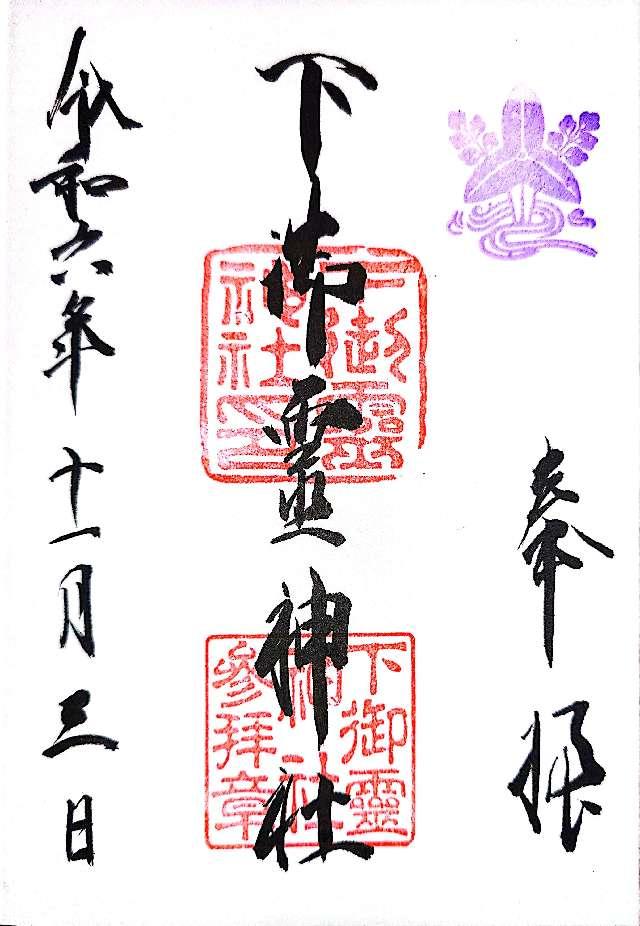 奉拝
下御霊神社
下御靈
神社印
下御靈
神社
參拝章
令和六年十一月三日